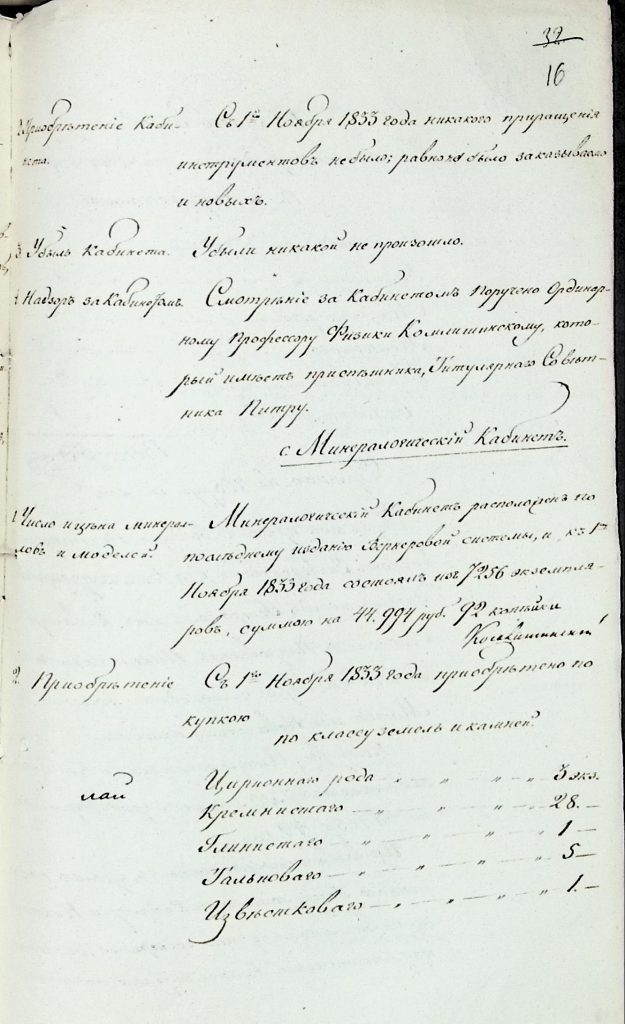 32
16
2. Приобрѣтеніе Каби-
нета.
Съ 1го Ноября 1833 года никакого приращенія
инструментовъ не было; равно не было заказываемо
и новыхъ.
3. Убыль Кабинета.
Убыли никакой не произошло.
4. Надзоръ за Кабинетомъ.
Смотрѣніе за Кабинетомъ поручено Ординар-
ному Профессору Физики Комлишинскому, кото-
рый имѣетъ приспѣшника, Титулярнаго Совѣт-
ника Питру.
с. Минералогическій Кабинетъ.
1. Число и цѣна минера-
ловъ и моделей.
Минералогическій Кабинетъ расположенъ по
послѣднему изданію Вернеровой системы, и къ 1му
Ноября 1833 года состоялъ изъ 7256 экземпля-
ровъ, суммою на 44.994 руб. 92 копѣйки
2. Приобрѣтеніе
Съ 1го Ноября 1833 года приобрѣтено по
купкою
по классу земель и камней.
Цирконнаго рода - „ - „ - „ - 3 экз.
Кремнистаго - „ - „ - „ - 28. -
Глинистаго - „ - „ - „ - 1 -
Тальковаго - „ - „ - „ - 5 -
Известковаго - „ - „ - „ - 1. -